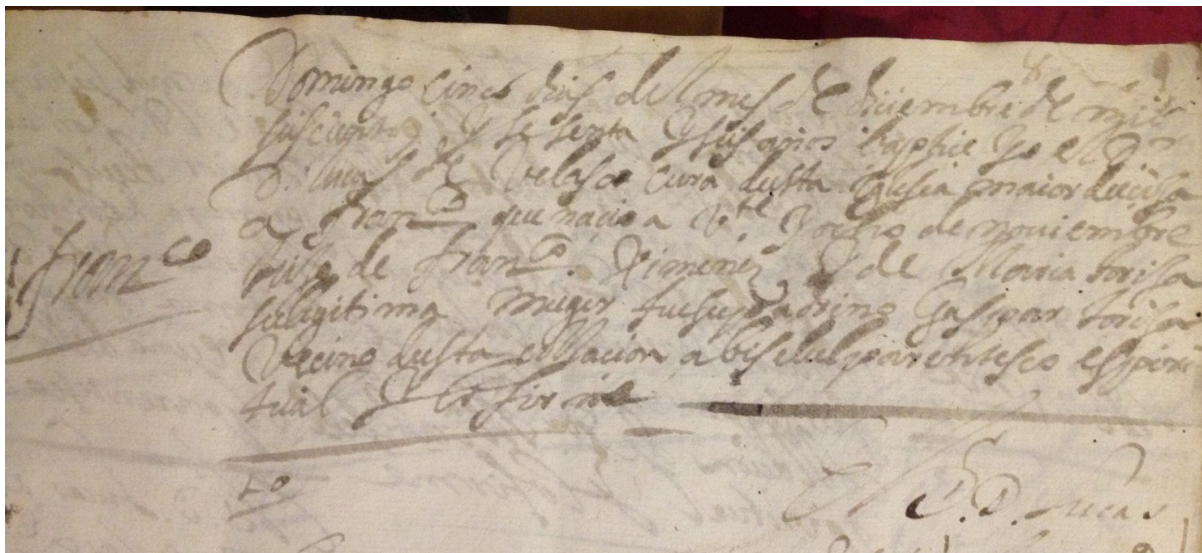 Domingo cinco dias del mes de diciembre de mil
seiscientos y sesenta y seis años baptice yo el Dor
D. lucas de Velasco cura desta iglesia maior
a franco que nacio a vte y ocho de noviembre
hijo de franco Ximenez y de Maria torisa
su legitima muger fue su padrino Gaspar torisa
vecino desta collacion avisele el parentesco espiri
tual y lo firme
franco
D. Lucas